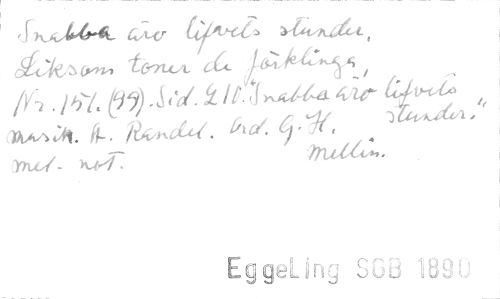 Snabba äro lifvets stunder,
Liksom toner de förklinga,
Nr. 151. (99). Sid. 210. "Snabba äro lifvets stunder."
musik. A. Randel. ord. G. H. Mellin.
mel- not.
EggeLing SGB 1890